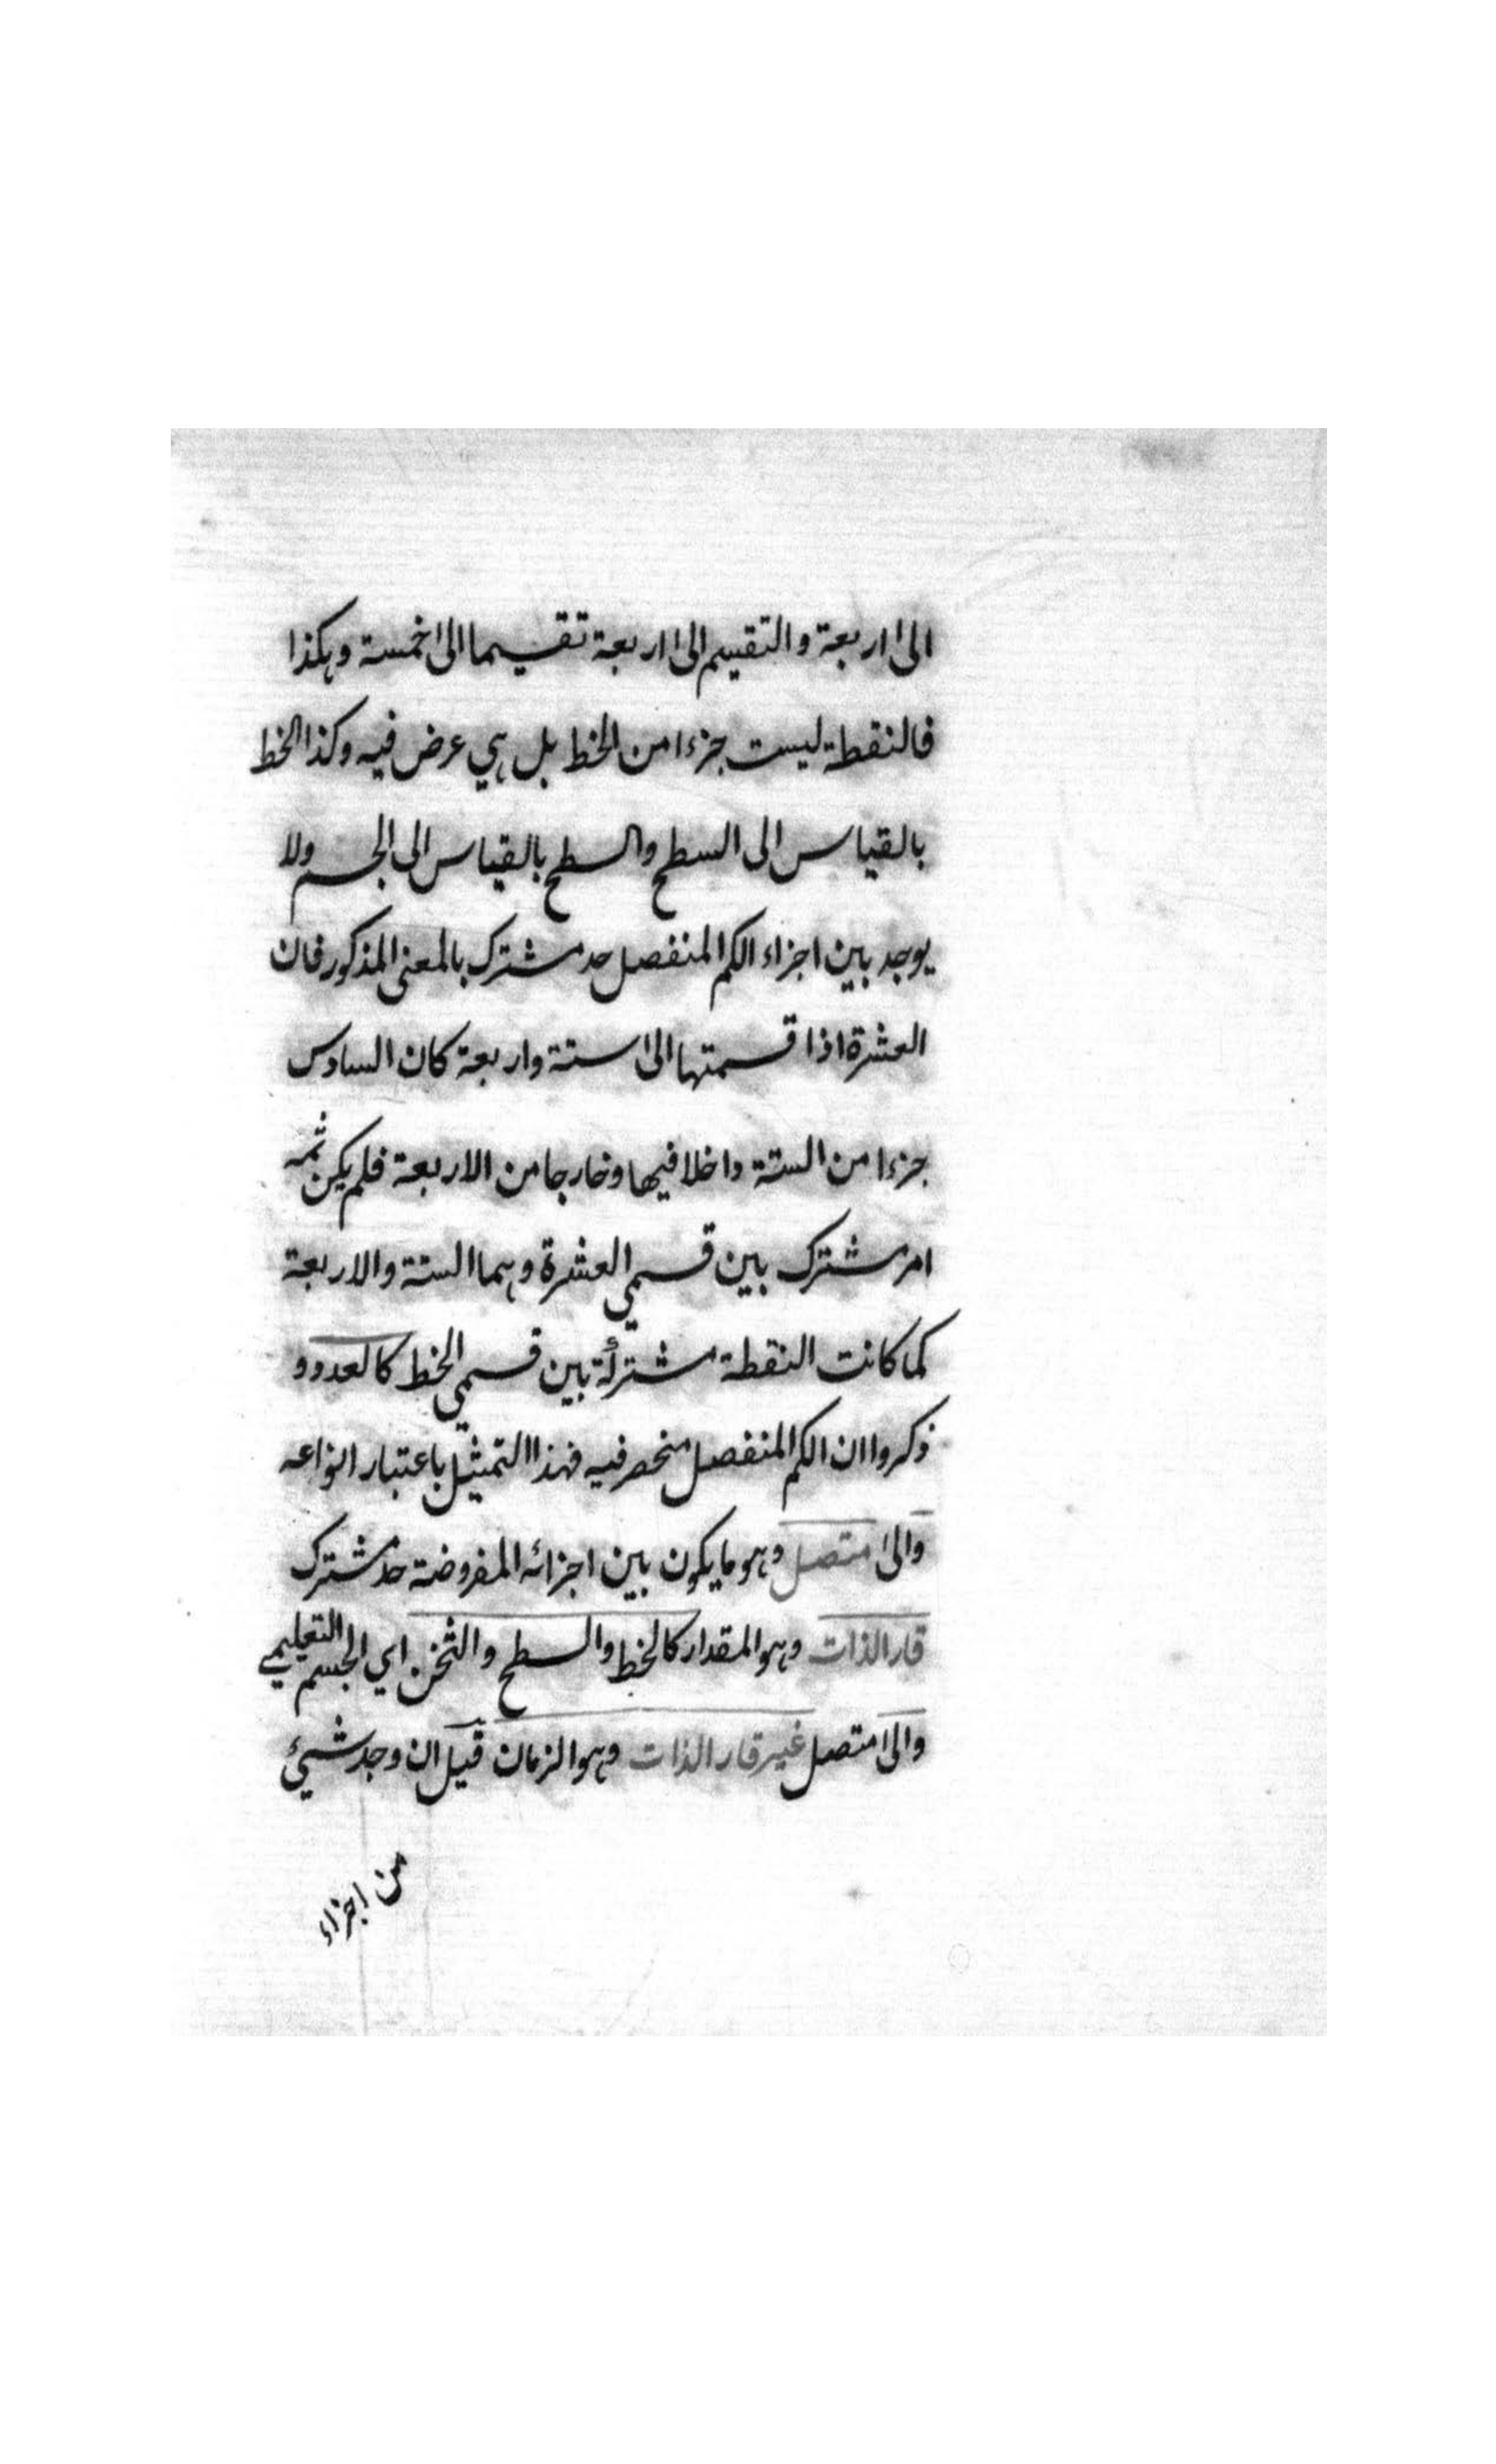 الى اربعة والتقسيم الى اربعة تقسيما الى خمسة وهكذا
فالنقطة ليست جزءا من الخط بل هي عرض فيه وكذا الخط
بالقياس الى السطح والسطح بالقياس الى الجسم ولا
يوجد بين اجزاء الكم المنفصل حد مشترك بالمعنى المذكور فان
العشرة اذا قسمتها الى ستة واربعة كان السادس
جزءا من الستة داخلا فيها وخارجا من الاربعة فلم يكن ثمه
امر مشترك بين قسمي العشرة وهما الستة والاربعة
كما كانت النقطة مشتركة بين قسمي الخط كالعدد و
ذكروا ان الكم المنفصل منحصر فيه فهذا التمثيل باعتبار انواعه
والى متصل وهو ما يكون بين اجزائه المفروضة حد مشترك
قار الذات وهو المقدار كالخط والسطح والثخن اي الجسم التعليمي
والى متصل غير قار الذات وهو الزمان قيل ان وجد شيئ
من اجزاء